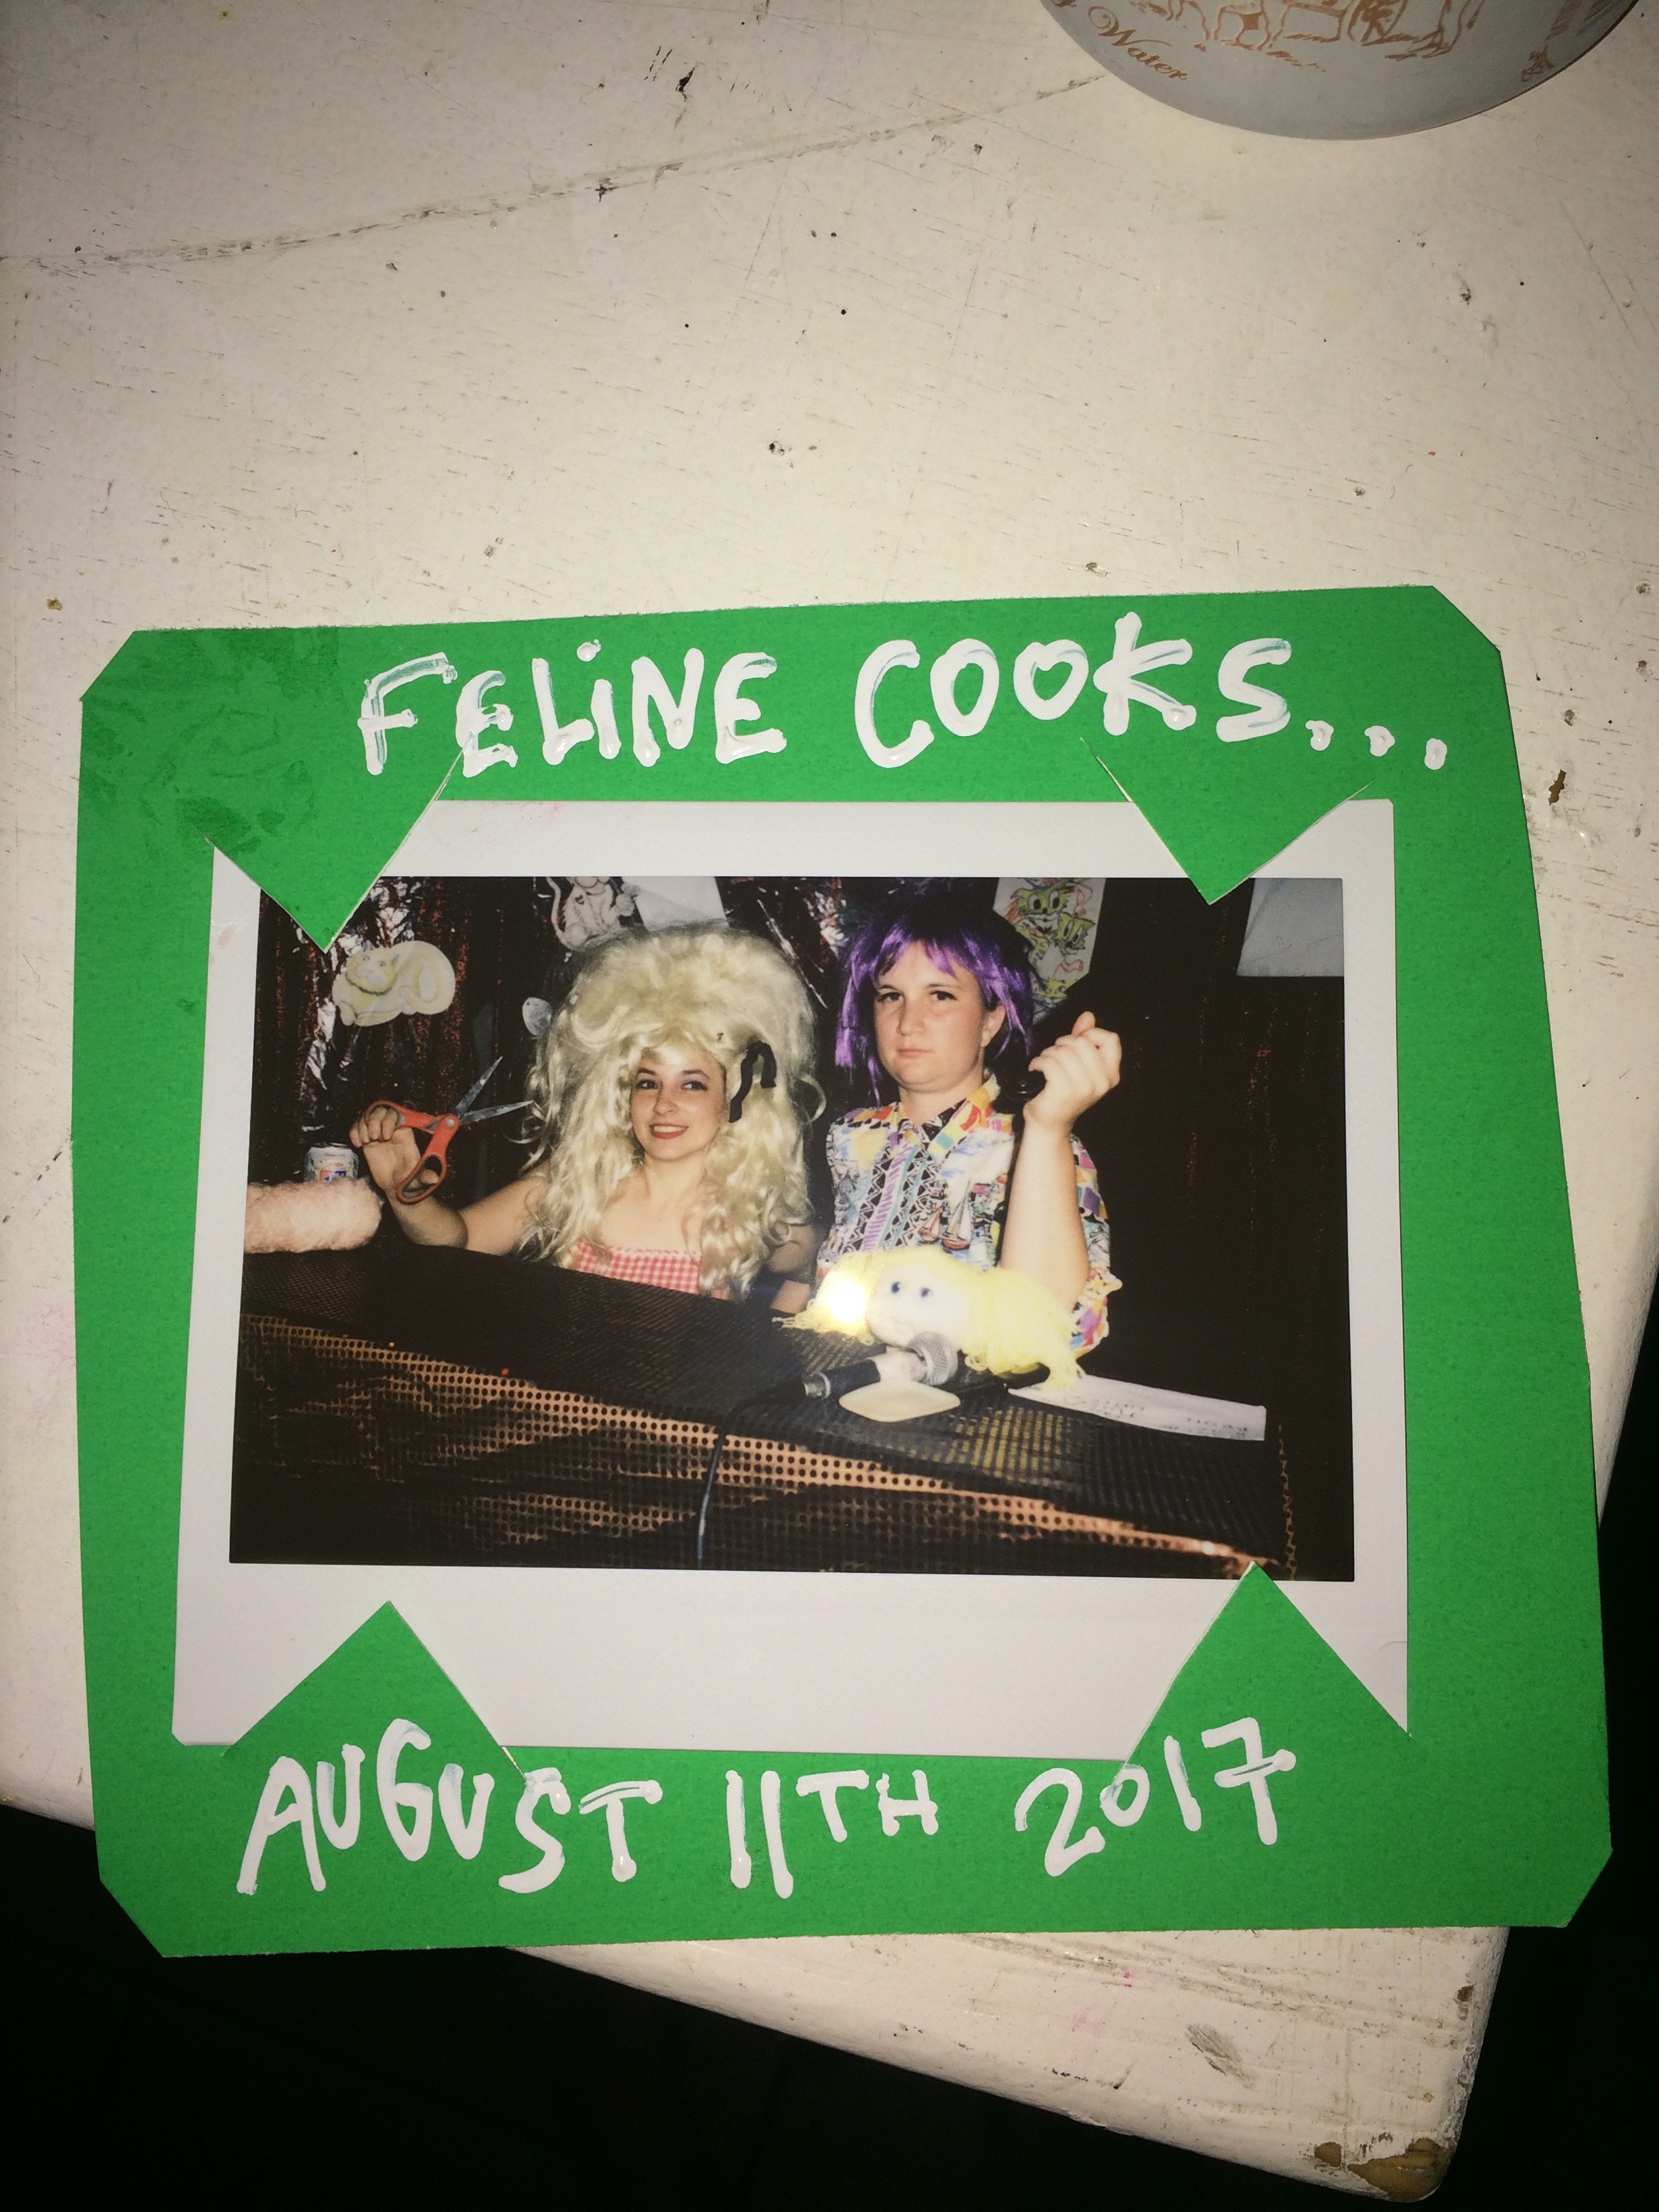 Water
FELiNE COOKS...
AUGUST 11TH 2017